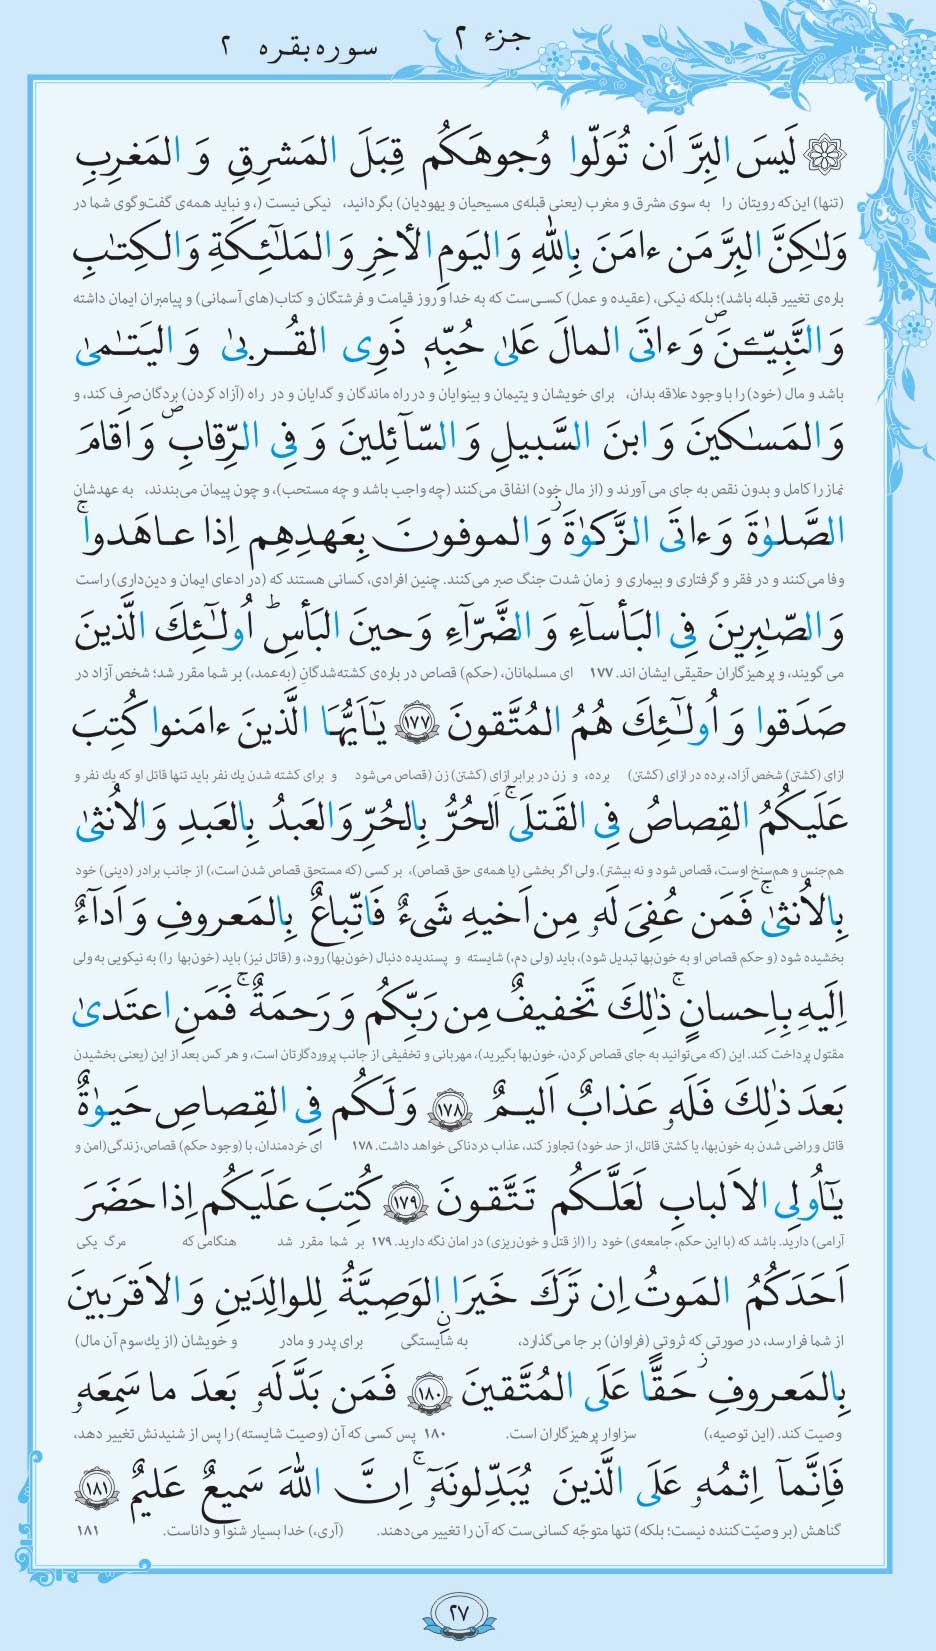 جزء ۲
سوره بقره ۲
لَيسَ البِرَّ اَن تُوَلّوا وُجوهَكُم قِبَلَ المَشرِقِ وَ المَغرِبِ
(تنها) این‌که رویتان را به سوی مشرق و مغرب (یعنی قبله‌ی مسیحیان و یهودیان) بگردانید، نیکی نیست (، و نباید همه‌ی گفت‌وگوی شما در
وَلٰكِنَّ البِرَّ مَن ءامَنَ بِاللّٰهِ وَ اليَومِ الأخِرِ وَ المَلٰٓئِكَةِ وَ الكِتٰبِ
باره‌ی تغییر قبله باشد)؛ بلکه نیکی، (عقیده و عمل) کسی‌ست که به خدا و روز قیامت و فرشتگان و کتاب(های آسمانی) و پیامبران ایمان داشته
وَ النَّبِيّـۧنَ ۖ وَ ءاتَى المالَ عَلىٰ حُبِّهٖ ذَوِى القُربىٰ وَ اليَتٰمىٰ
باشد و مال (خود) را با وجود علاقه بدان، برای خویشان و یتیمان و بینوایان و در راه ماندگان و گدایان و در راه (آزاد کردن) بردگان صرف کند، و
وَ المَسٰكينَ وَ ابنَ السَّبيلِ وَ السّآئِلينَ وَ فِى الرِّقابِ ۖ وَ اَقامَ
نماز را کامل و بدون نقص به جای می آورند و (از مال خود) انفاق می‌کنند (چه واجب باشد و چه مستحب)، و چون پیمان می‌بندند، به عهدشان
الصَّلوٰةَ وَ ءاتَى الزَّكوٰةَ ز وَ الموفونَ بِعَهدِهِم اِذا عاهَدوا ۚ
وفا می‌کنند و در فقر و گرفتاری و بیماری و زمان شدت جنگ صبر می‌کنند. چنین افرادی، کسانی هستند که (در ادعای ایمان و دین‌داری) راست
وَ الصّٰبِرينَ فِى البَأسآءِ وَ الضَّرّآءِ وَ حينَ البَأسِ ؕ اُولٰٓئِكَ الَّذينَ
می گویند، و پرهیزگاران حقیقی ایشان اند. ۱۷۷ ای مسلمانان، (حکم) قصاص در باره‌ی کشته‌شدگانِ (به‌عمد،) بر شما مقرر شد؛ شخص آزاد در
صَدَقوا وَ اُولٰٓئِكَ هُمُ المُتَّقونَ ۱۷۷ يٰٓاَيُّهَا الَّذينَ ءامَنوا كُتِبَ
ازای (کشتن) شخص آزاد، برده در ازای (کشتن) برده، و زن در برابر ازای (کشتن) زن (قصاص می‌شود و برای کشته شدن یك نفر باید تنها قاتل او که یك نفر و
عَلَيكُمُ القِصاصُ فِى القَتلَى ۚ اَلحُرُّ بِالحُرِّ وَ العَبدُ بِالعَبدِ وَ الاُنثىٰ
هم‌جنس و هم‌سنخ اوست، قصاص شود و نه بیشتر). ولی اگر بخشی (یا همه‌ی حق قصاص)، بر کسی (که مستحق قصاص شدن است،) از جانب برادر (دینی) خود
بِالاُنثىٰ ۚ فَمَن عُفِىَ لَهٗ مِن اَخيهِ شَىءٌ فَاتِّباعٌ بِالمَعروفِ وَ اَدآءٌ
بخشیده شود (و حکم قصاص او به خون‌بها تبدیل شود)، باید (ولی دم،) شایسته و پسندیده دنبال (خون‌بها) رود، و (قاتل نیز) باید (خون‌بها را) به نیکویی به ولی
اِلَيهِ بِاِحسانٍ ۚ ذٰلِكَ تَخفيفٌ مِن رَبِّكُم وَ رَحمَةٌ ۚ فَمَنِ اعتَدىٰ
مقتول پرداخت کند. این (که می‌توانید به جای قصاص کردن، خون‌بها بگیرید)، مهربانی و تخفیفی از جانب پروردگارتان است، و هر کس بعد از این (یعنی بخشیدن
بَعدَ ذٰلِكَ فَلَهٗ عَذابٌ اَليمٌ ۱۷۸ وَ لَكُم فِى القِصاصِ حَيوٰةٌ
قاتل و راضی شدن به خون‌بها، یا کشتن قاتل، از حد خود) تجاوز کند، عذاب دردناکی خواهد داشت. ۱۷۸ ای خردمندان، با (وجود حکم) قصاص، زندگی(امن و
يٰٓاُولِى الاَلبابِ لَعَلَّكُم تَتَّقونَ ۱۷۹ كُتِبَ عَلَيكُم اِذا حَضَرَ
آرامی) دارید. باشد که (با این حکم، جامعه‌ی) خود را (از قتل و خون‌ریزی) در امان نگه دارید. ۱۷۹ بر شما مقرر شد هنگامی که مرگ یکی
اَحَدَكُمُ المَوتُ اِن تَرَكَ خَيرَا ن الوَصِيَّةُ لِلوالِدَينِ وَ الاَقرَبينَ
از شما فرا رسد، در صورتی که ثروتی (فراوان) بر جا می‌گذارد، به شایستگی برای پدر و مادر و خویشان (از یك‌سوم آن مال)
بِالمَعروفِ ز حَقًّا عَلَى المُتَّقينَ ۱۸۰ فَمَن بَدَّلَهٗ بَعدَ ما سَمِعَهٗ
وصیت کند. (این توصیه،) سزاوار پرهیزگاران است. ۱۸۰ پس کسی که آن (وصیت شایسته) را پس از شنیدنش تغییر دهد،
فَاِنَّمآ اِثمُهٗ عَلَى الَّذينَ يُبَدِّلونَهٗٓ ۚ اِنَّ اللّٰهَ سَميعٌ عَليمٌ ۱۸۱
گناهش (بر وصیّت‌کننده نیست؛ بلکه) تنها متوجّه کسانی‌ست که آن را تغییر می‌دهند. (آری،) خدا بسیار شنوا و داناست. ۱۸۱
۲۷